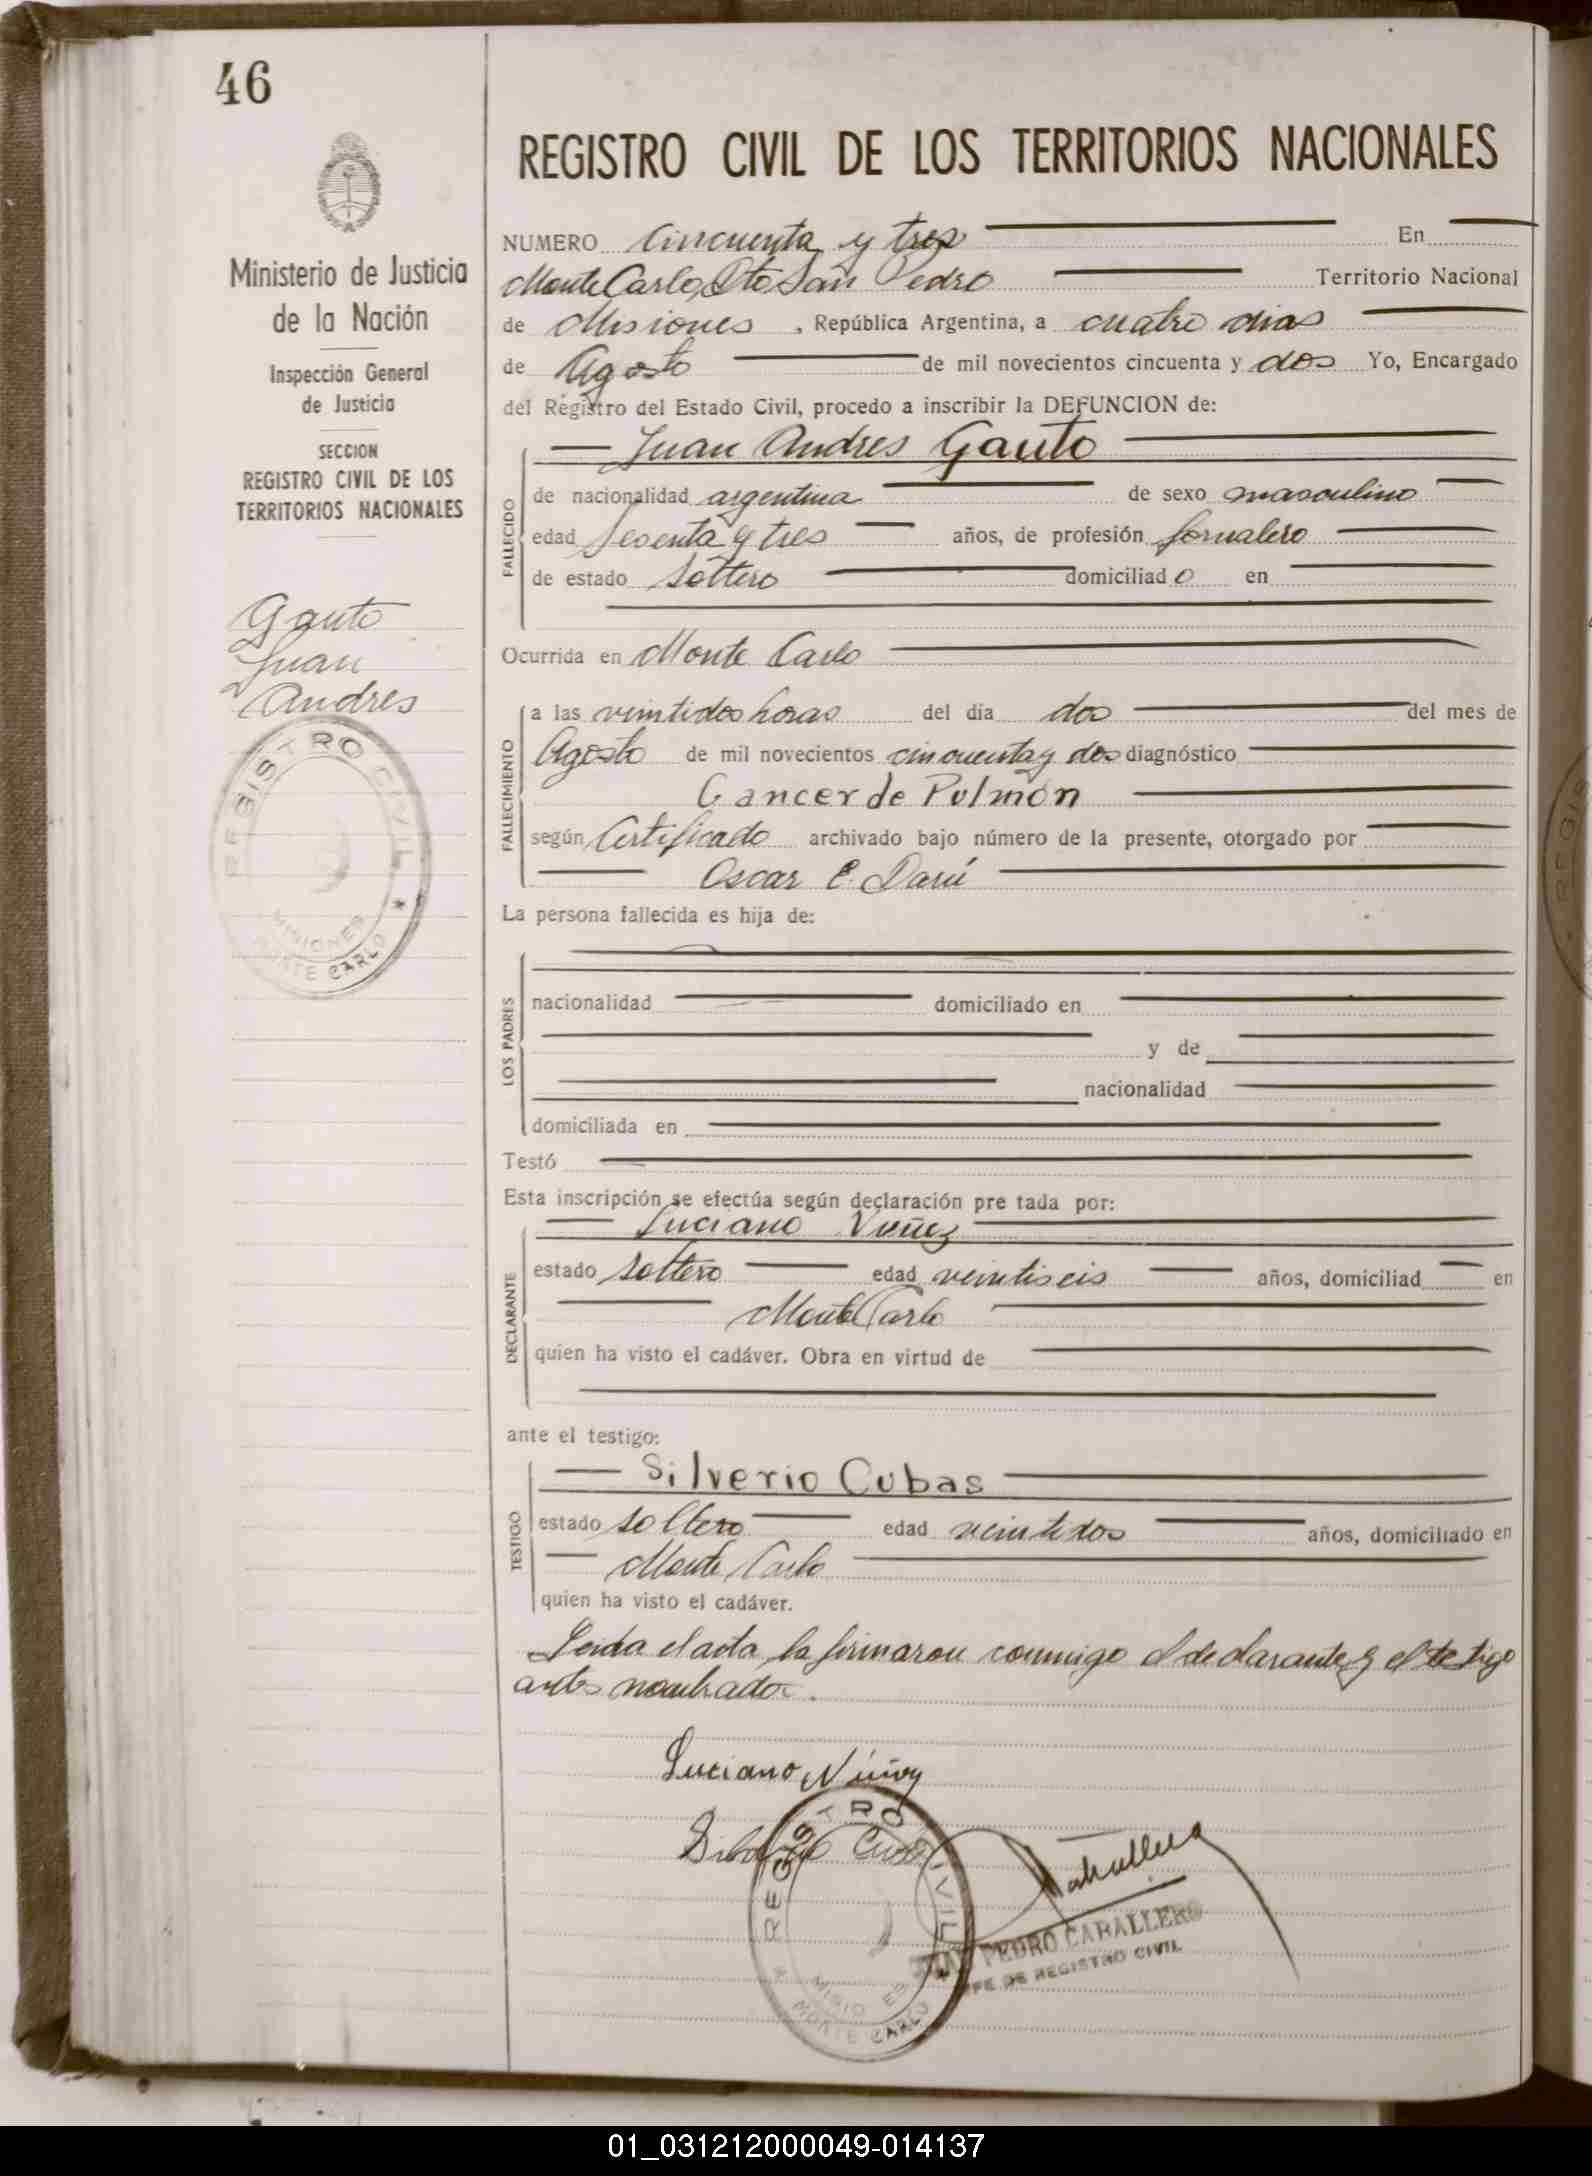 46
Ministerio de Justicia
de la Nación
Inspección General
de Justicia
SECCION
REGISTRO CIVIL DE LOS
TERRITORIOS NACIONALES
Gauto
Juan
Andres
REGISTRO CIVIL
MISIONES
MONTE CARLO
REGISTRO CIVIL DE LOS TERRITORIOS NACIONALES
NUMERO cincuenta y tres En
Monte Carlo, Dto San Pedro Territorio Nacional
de Misiones , República Argentina, a cuatro dias
de Agosto de mil novecientos cincuenta y dos Yo, Encargado
del Registro del Estado Civil, procedo a inscribir la DEFUNCION de:
Juan Andres Gauto
FALLECIDO
de nacionalidad argentina de sexo masculino
edad sesenta y tres años, de profesión jornalero
de estado soltero domiciliado en
Ocurrida en Monte Carlo
FALLECIMIENTO
a las veintidos horas del día dos del mes de
Agosto de mil novecientos cincuenta y dos diagnóstico
Cancer de Pulmón
según Certificado archivado bajo número de la presente, otorgado por
Oscar C. Darú
La persona fallecida es hija de:
LOS PADRES
nacionalidad domiciliado en
y de
nacionalidad
domiciliada en
Testó
Esta inscripción se efectúa según declaración pre tada por:
Luciano Nuñez
DECLARANTE
estado soltero edad veintiseis años, domiciliad en
Monte Carlo
quien ha visto el cadáver. Obra en virtud de
ante el testigo:
Silverio Cubas
TESTIGO
estado soltero edad veintidos años, domiciliado en
Monte Carlo
quien ha visto el cadáver.
Leida el acta, la firmaron conmigo el declarante y el testigo
antes nombrados.
Luciano Núñez
REGISTRO CIVIL
MISIONES
MONTE CARLO
PEDRO CABALLERO
JEFE DE REGISTRO CIVIL
01_031212000049-014137